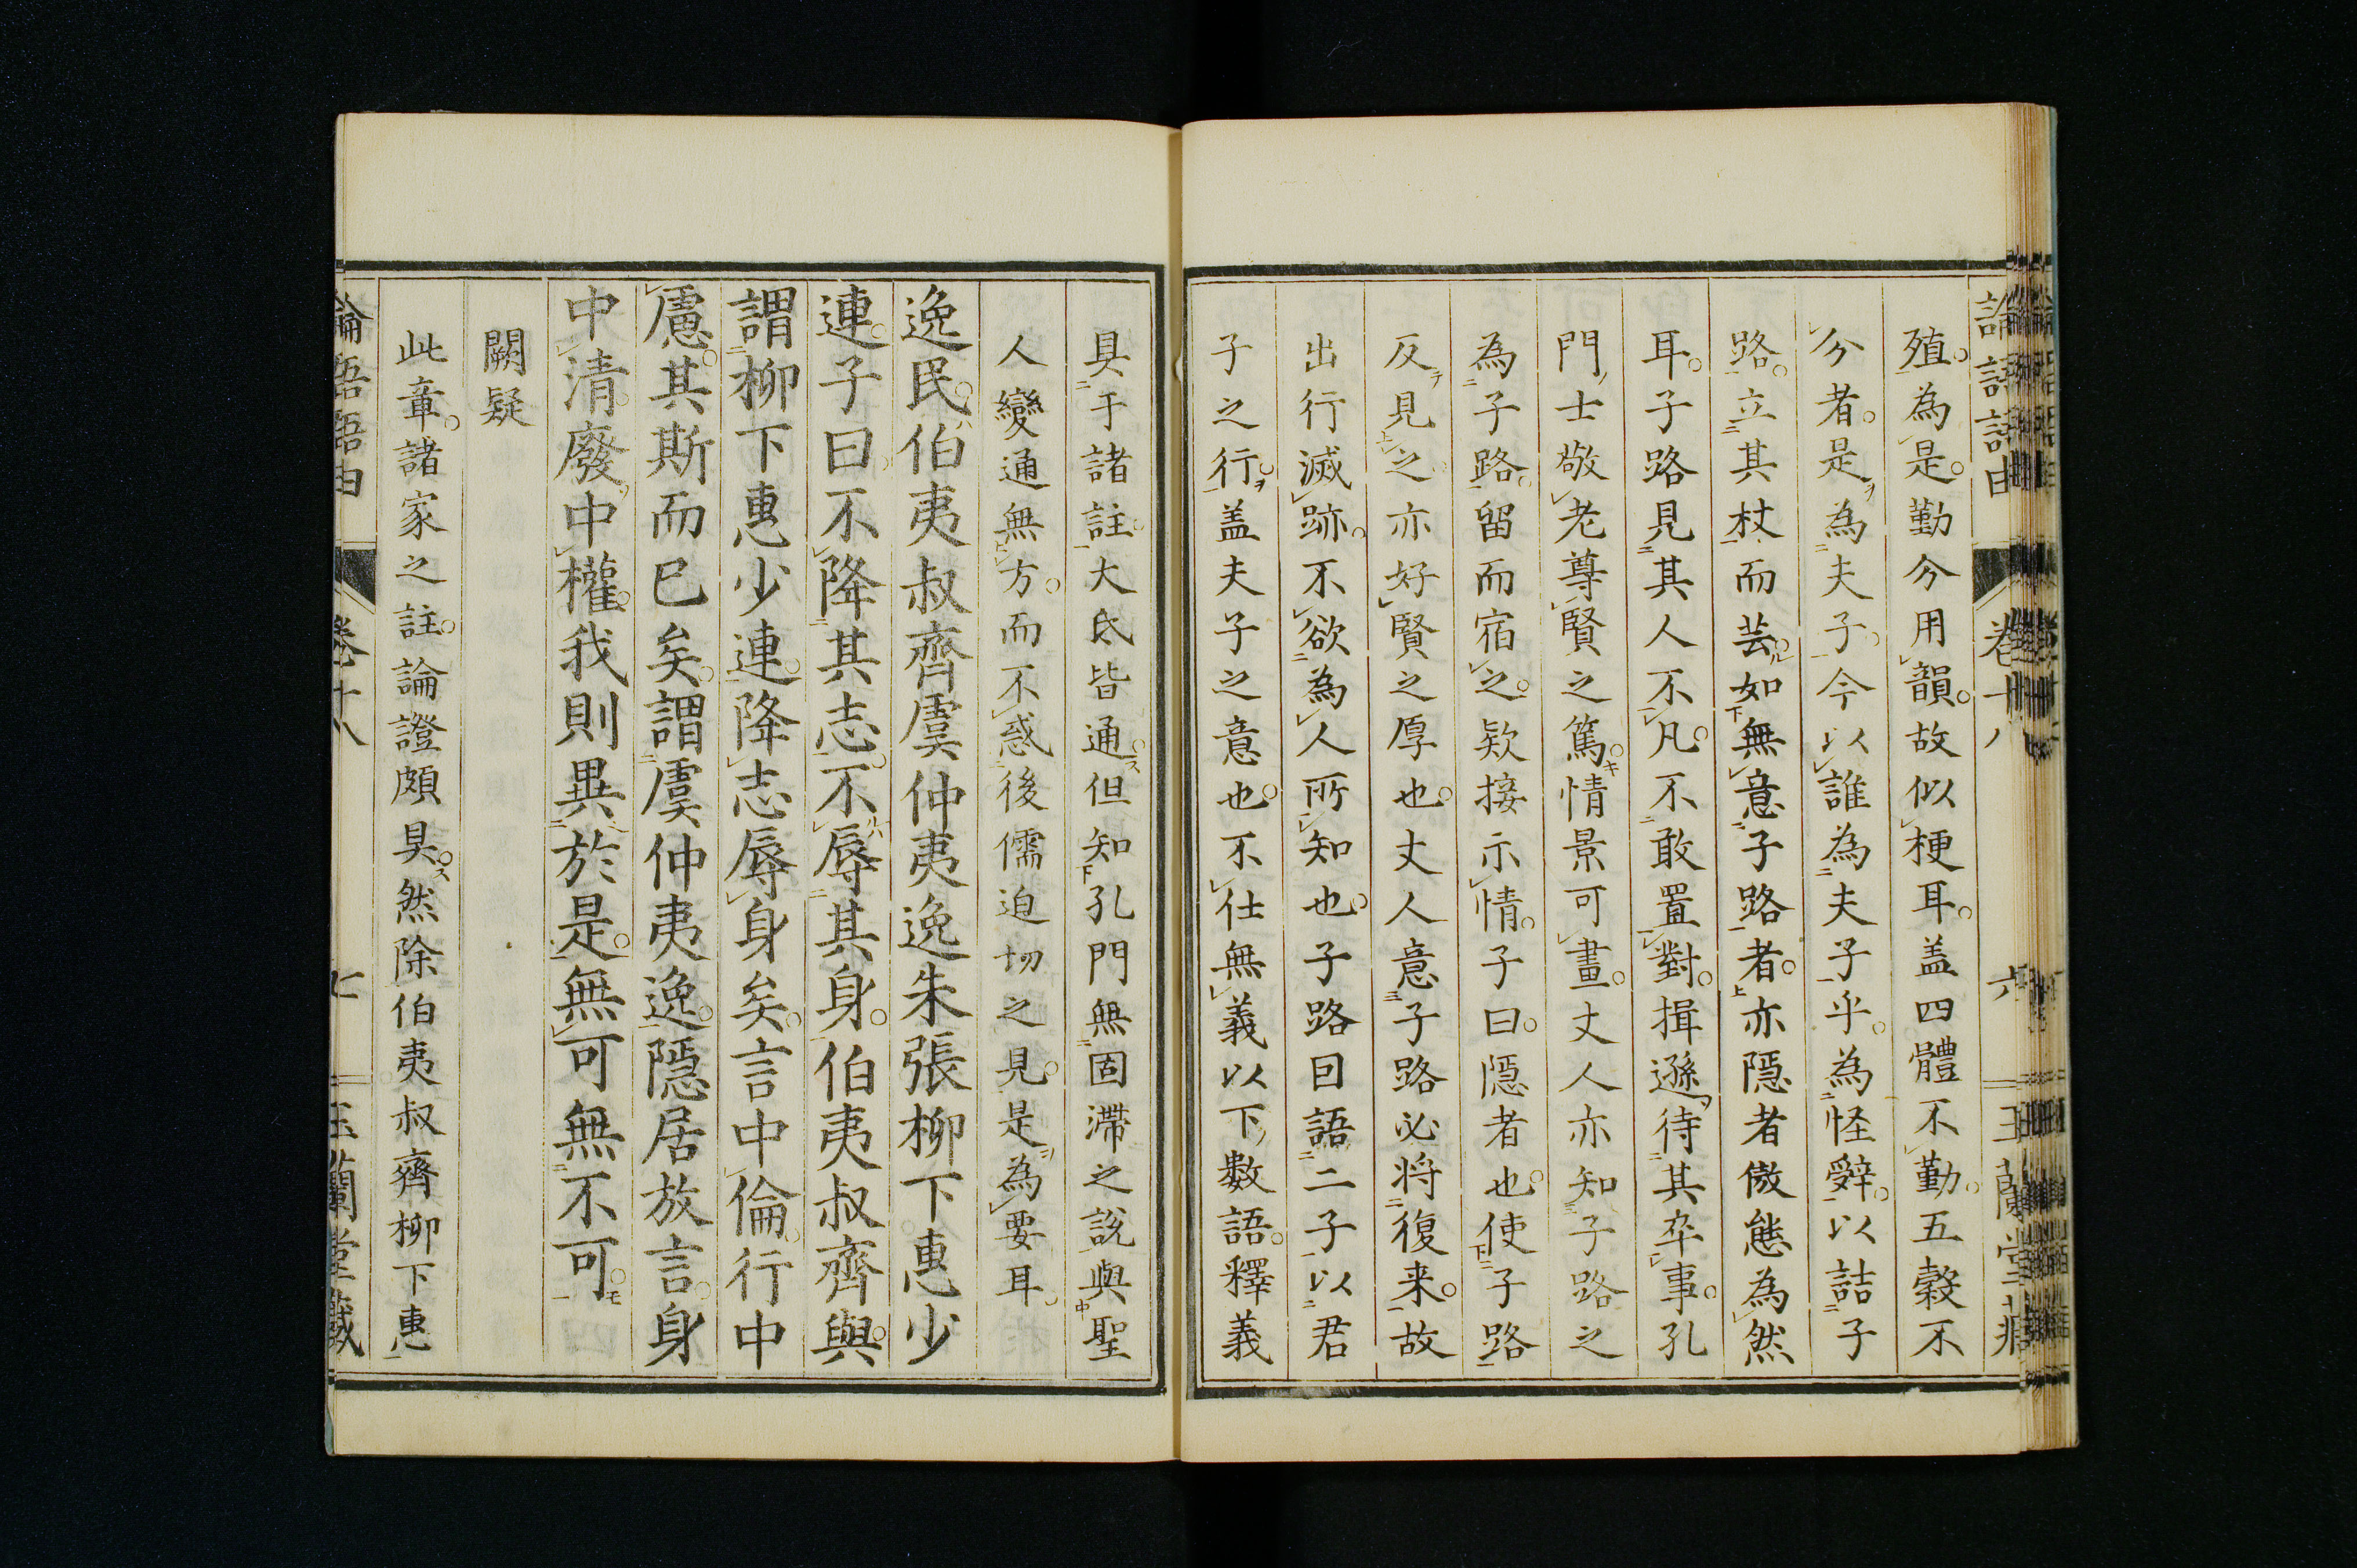 論語語由 卷十八 六 玉蘭堂藏
殖為是勤分用韻故似梗耳盖四體不勤五穀不
分者是為夫子今以誰為夫子乎為怪辭以詰子
路立其杖而芸如無意子路者亦隱者傲態為然
耳子路見其人不凡不敢置對揖遜待其卒事孔
門士敬老尊賢之篤情景可畫丈人亦知子路之
為子路留而宿之欵接示情子曰隱者也使子路
反見之亦好賢之厚也丈人意子路必將復来故
出行滅跡不欲為人所知也子路回語二子以君
子之行盖夫子之意也不仕無義以下數語釋義
具于諸註大氐皆通但知孔門無固滯之説與聖
人變通無方而不惑後儒迫切之見是為要耳
逸民伯夷叔齊虞仲夷逸朱張柳下惠少
連子曰不降其志不辱其身伯夷叔齊與
謂柳下惠少連降志辱身矣言中倫行中
慮其斯而已矣謂虞仲夷逸隱居放言身
中清廢中權我則異於是無可無不可
闕疑
此章諸家之註論證頗具然除伯夷叔齊柳下惠
論語語由 卷十八 七 玉蘭堂藏